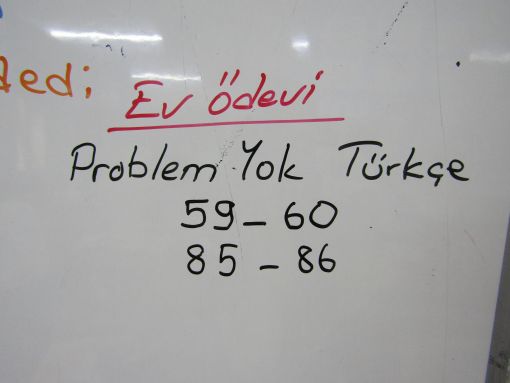 Ev ödevi
Problem Yok Türkçe
59 - 60
85 - 86